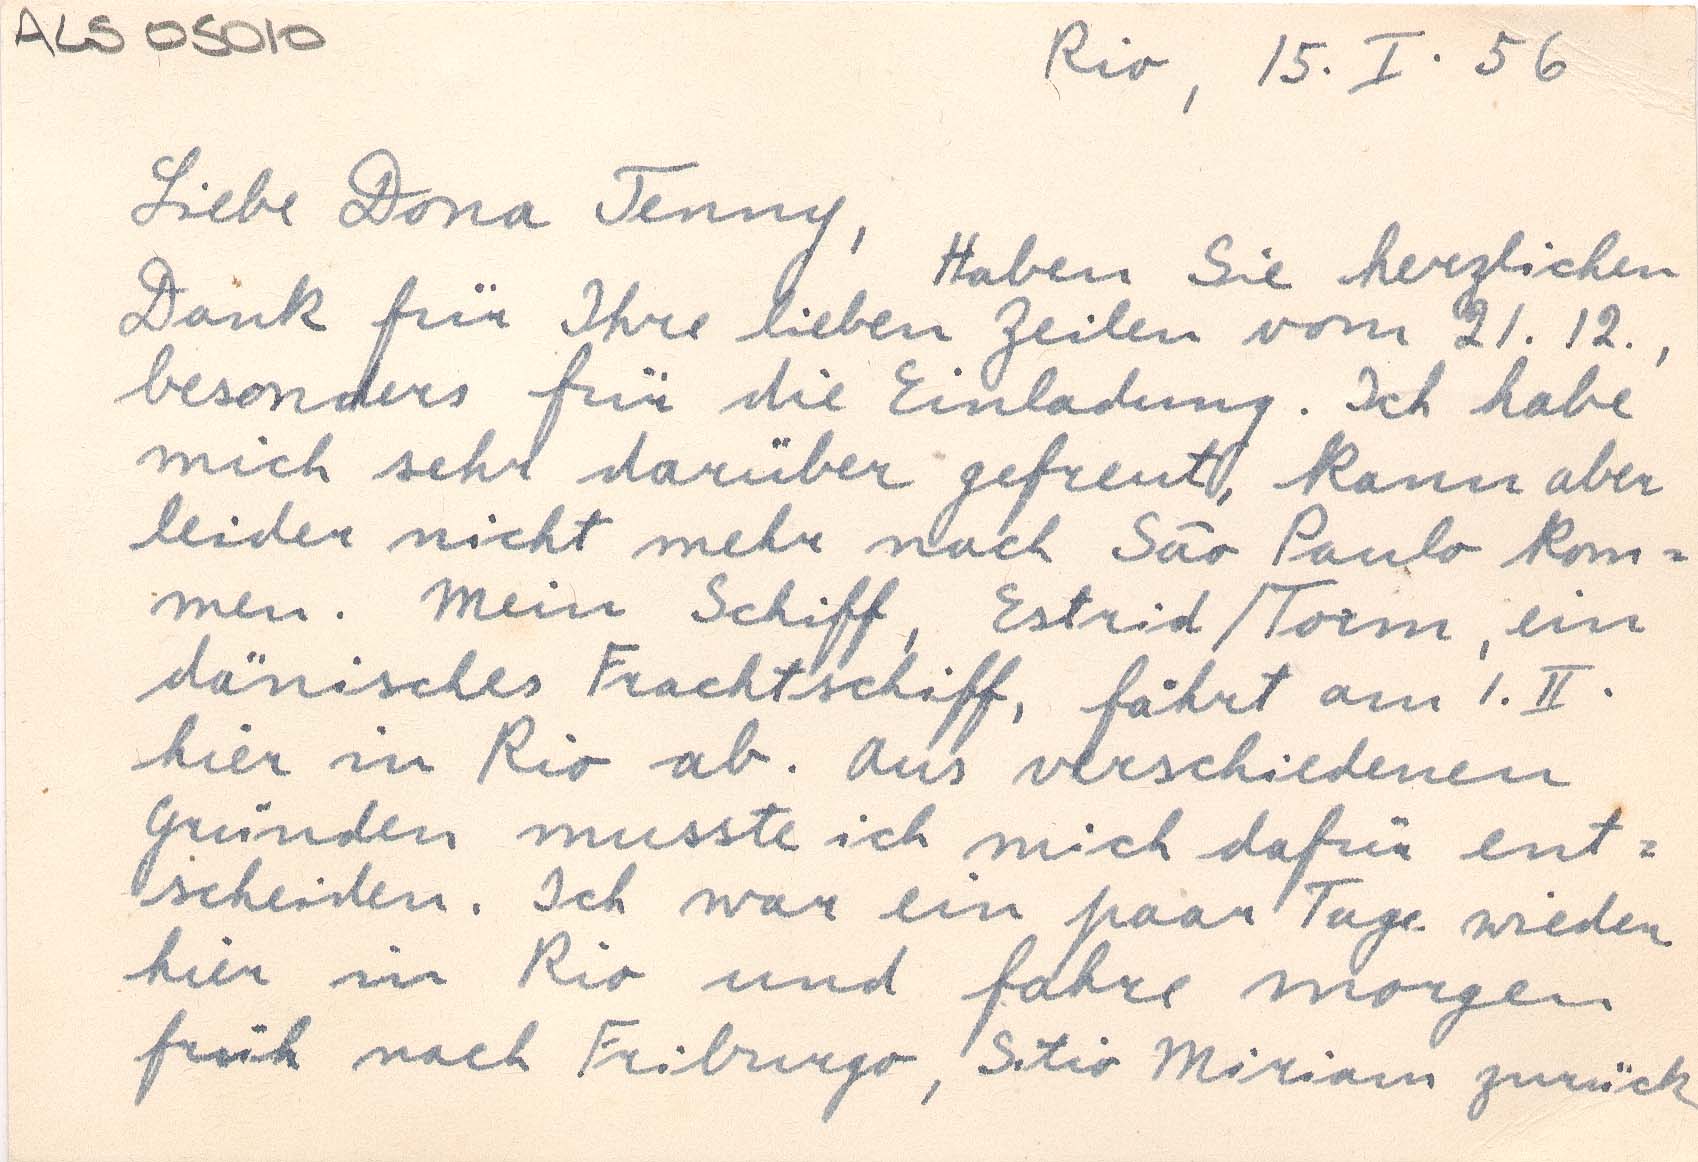 ALS 05010
Rio, 15. I. 56
Liebe Dona Jenny,
Haben Sie herzlichen
Dank für Ihre lieben Zeilen vom 21. 12.,
besonders für die Einladung. Ich habe
mich sehr darüber gefreut, kann aber
leider nicht mehr nach São Paulo kom=
men. Mein Schiff, Estrid/Torm, ein
dänisches Frachtschiff, fährt am 1. II.
hier in Rio ab. Aus verschiedenen
Gründen musste ich mich dafür ent=
scheiden. Ich war ein paar Tage wieder
hier in Rio und fahre morgen
früh nach Friburgo, Sitio Miriam zurück